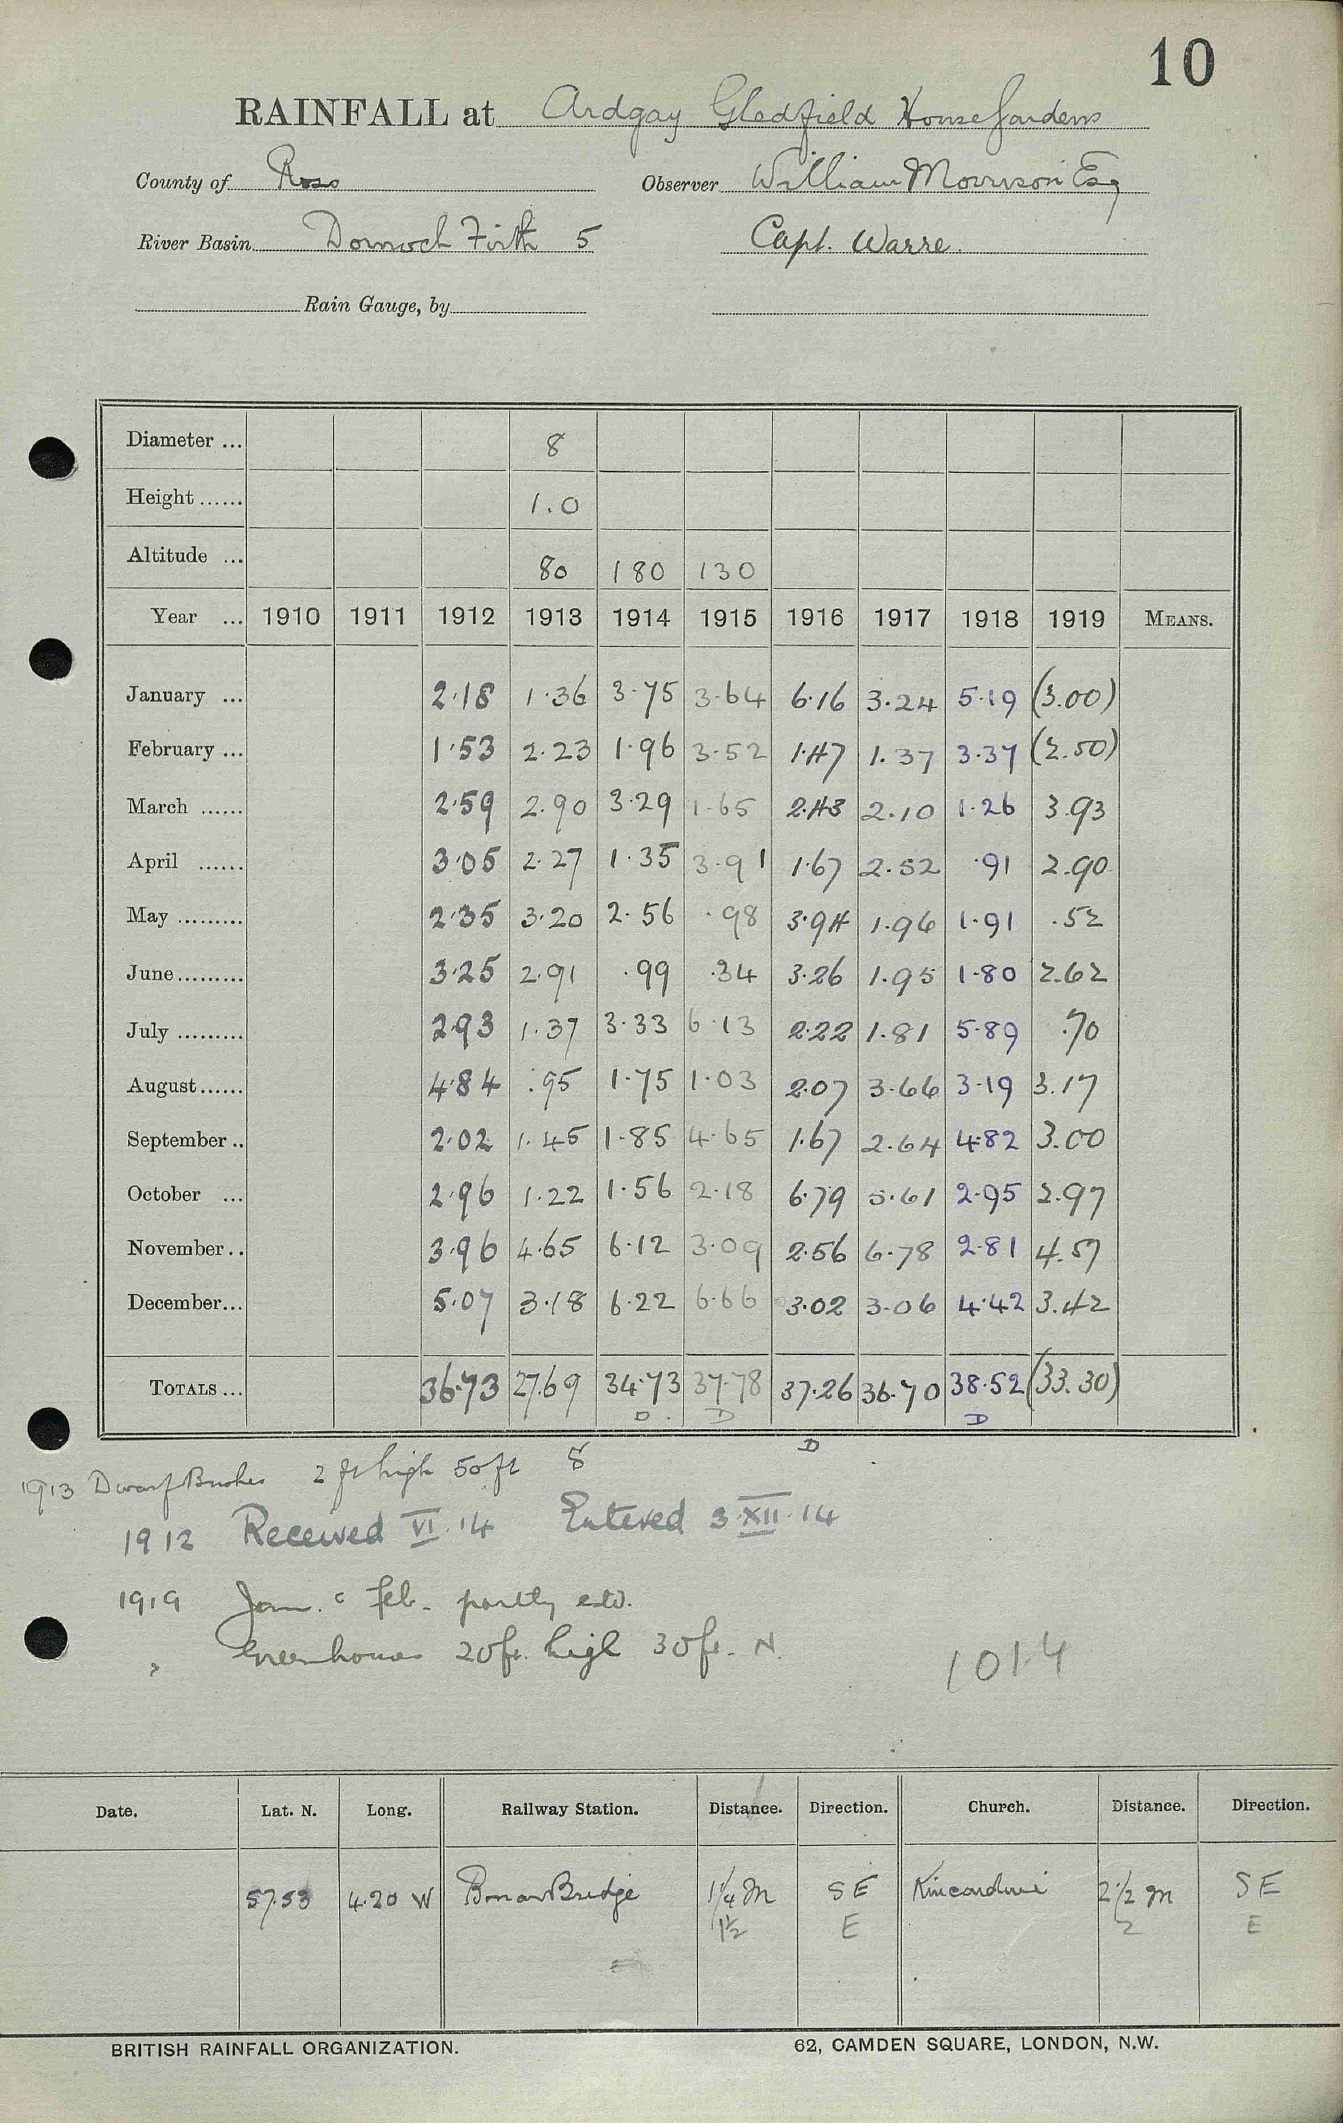 10
RAINFALL at Ardgay Gledfield House Gardens
County of Ross Observer William Morrison Esq
River Basin Dornoch Firth 5 Capt. Warre.
Rain Gauge, by
Diameter ... 8
Height ...... 1.0
Altitude ... 80 180 130
Year ... 1910 1911 1912 1913 1914 1915 1916 1917 1918 1919 MEANS.
January ... 2.18 1.36 3.75 3.64 6.16 3.24 5.19 (3.00)
February ... 1.53 2.23 1.96 3.52 1.47 1.37 3.37 (2.50)
March ...... 2.59 2.90 3.29 1.65 2.43 2.10 1.26 3.93
April ...... 3.05 2.27 1.35 3.91 1.67 2.52 .91 2.90
May ......... 2.35 3.20 2.56 .98 3.94 1.96 1.91 .52
June ......... 3.25 2.91 .99 .34 3.26 1.95 1.80 2.62
July ......... 2.93 1.37 3.33 6.13 2.22 1.81 5.89 .70
August ...... 4.84 .95 1.75 1.03 2.07 3.66 3.19 3.17
September .. 2.02 1.45 1.85 4.65 1.67 2.64 4.82 3.00
October ... 2.96 1.22 1.56 2.18 6.79 5.61 2.95 2.97
November .. 3.96 4.65 6.12 3.09 2.56 6.78 2.81 4.57
December ... 5.07 3.18 6.22 6.66 3.02 3.06 4.42 3.42
TOTALS ... 36.73 27.69 34.73 37.78 37.26 36.70 38.52 (33.30)
D. D D
D
1913 Dwarf Bushes 2 ft high 50 ft S
1912 Received VI.14 Entered 3.XII.14
1919 Jan. & Feb. partly estd.
" Greenhouses 20ft. high 30ft. N.
1014
Date. Lat. N. Long. Railway Station. Distance. Direction. Church. Distance. Direction.
57.53 4.20 W Bonar Bridge 1¼ m S E Kincardine 2½ m S E
1½ E 2 E
BRITISH RAINFALL ORGANIZATION. 62, CAMDEN SQUARE, LONDON, N.W.